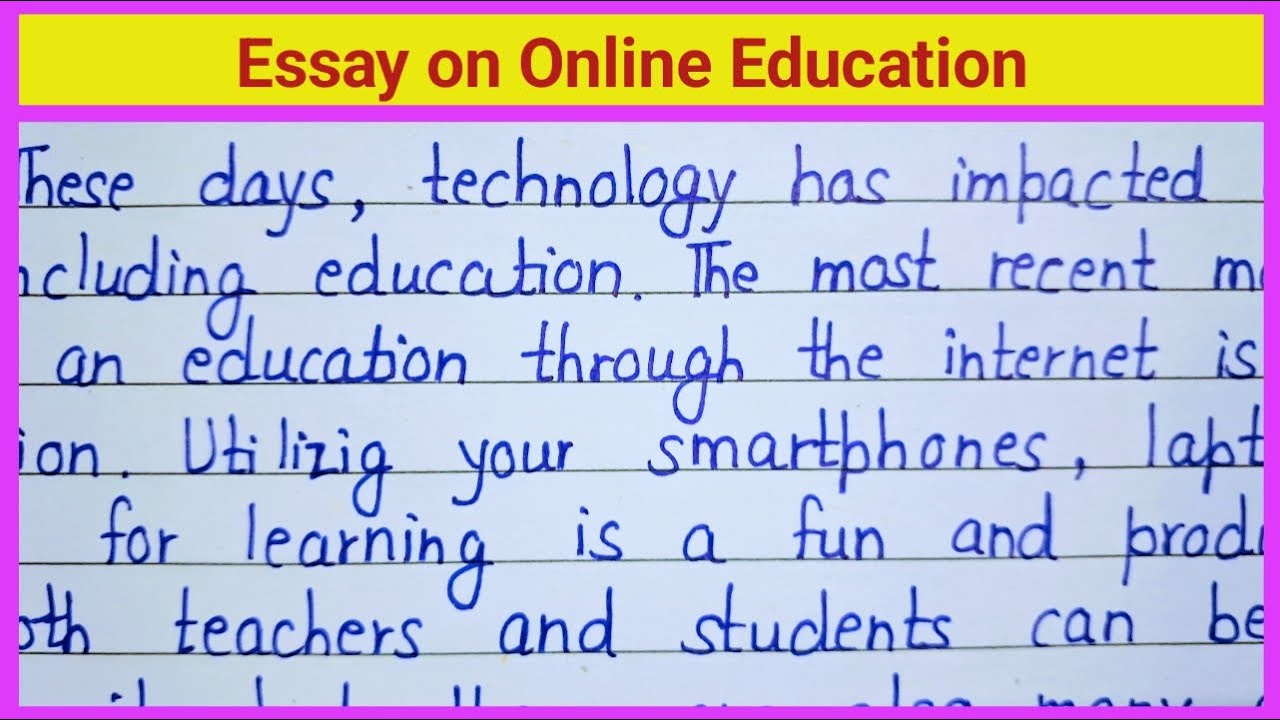 Essay on Online Education
These days, technology has impacted
including education. The most recent
an education through the internet is
Utilizig your smartphones,
for learning is a fun and
teachers and students can be
also many